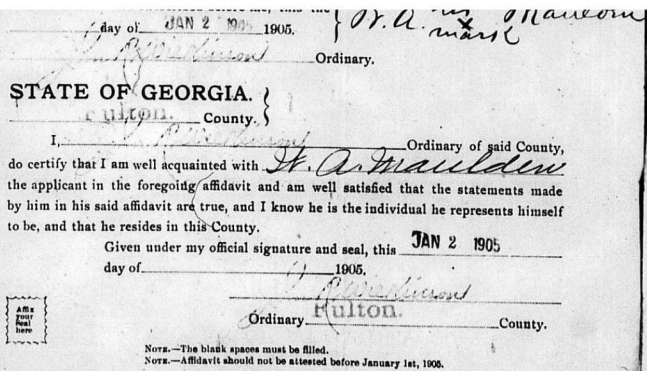 day of JAN 2 1905 1905.
W. A. his
x
mark
Ordinary.
STATE OF GEORGIA.
Fulton. County.
I, Ordinary of said County,
do certify that I am well acquainted with W. A. Maulden
the applicant in the foregoing affidavit and am well satisfied that the statements made
by him in his said affidavit are true, and I know he is the individual he represents himself
to be, and that he resides in this County.
Given under my official signature and seal, this JAN 2 1905
day of 1905.
Ordinary Fulton. County.
Affix
your
Seal
here
NOTE.—The blank spaces must be filled.
NOTE.—Affidavit should not be attested before January 1st, 1905.